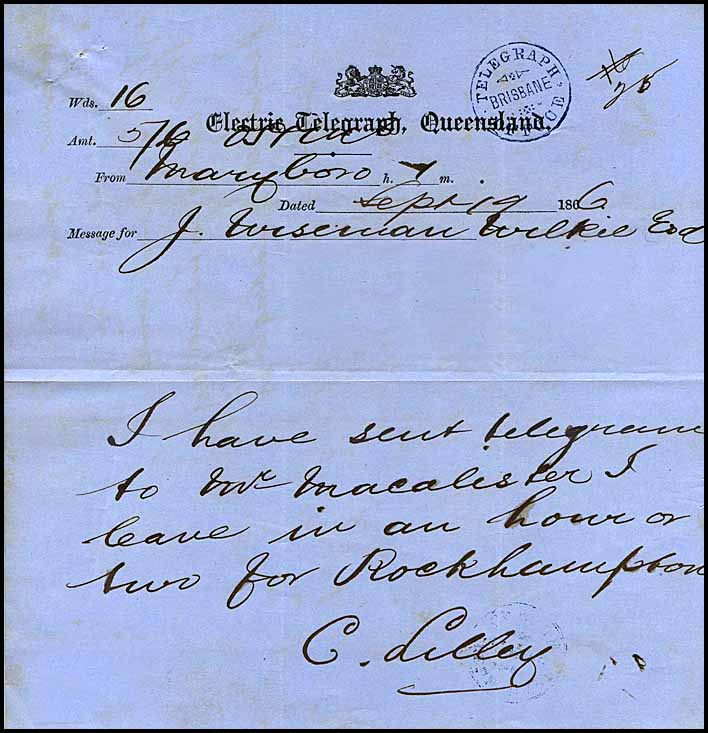 TELEGRAPH OFFICE
BRISBANE
Wds. 16
Electric Telegraph, Queensland.
Amt. 5/6
From Maryboro h. m.
Dated Sept 19 1866
Message for J. Wiseman Wilkie Esq
I have sent telegram
to Mr Macalister I
leave in an hour or
two for Rockhampton
C. Lilley